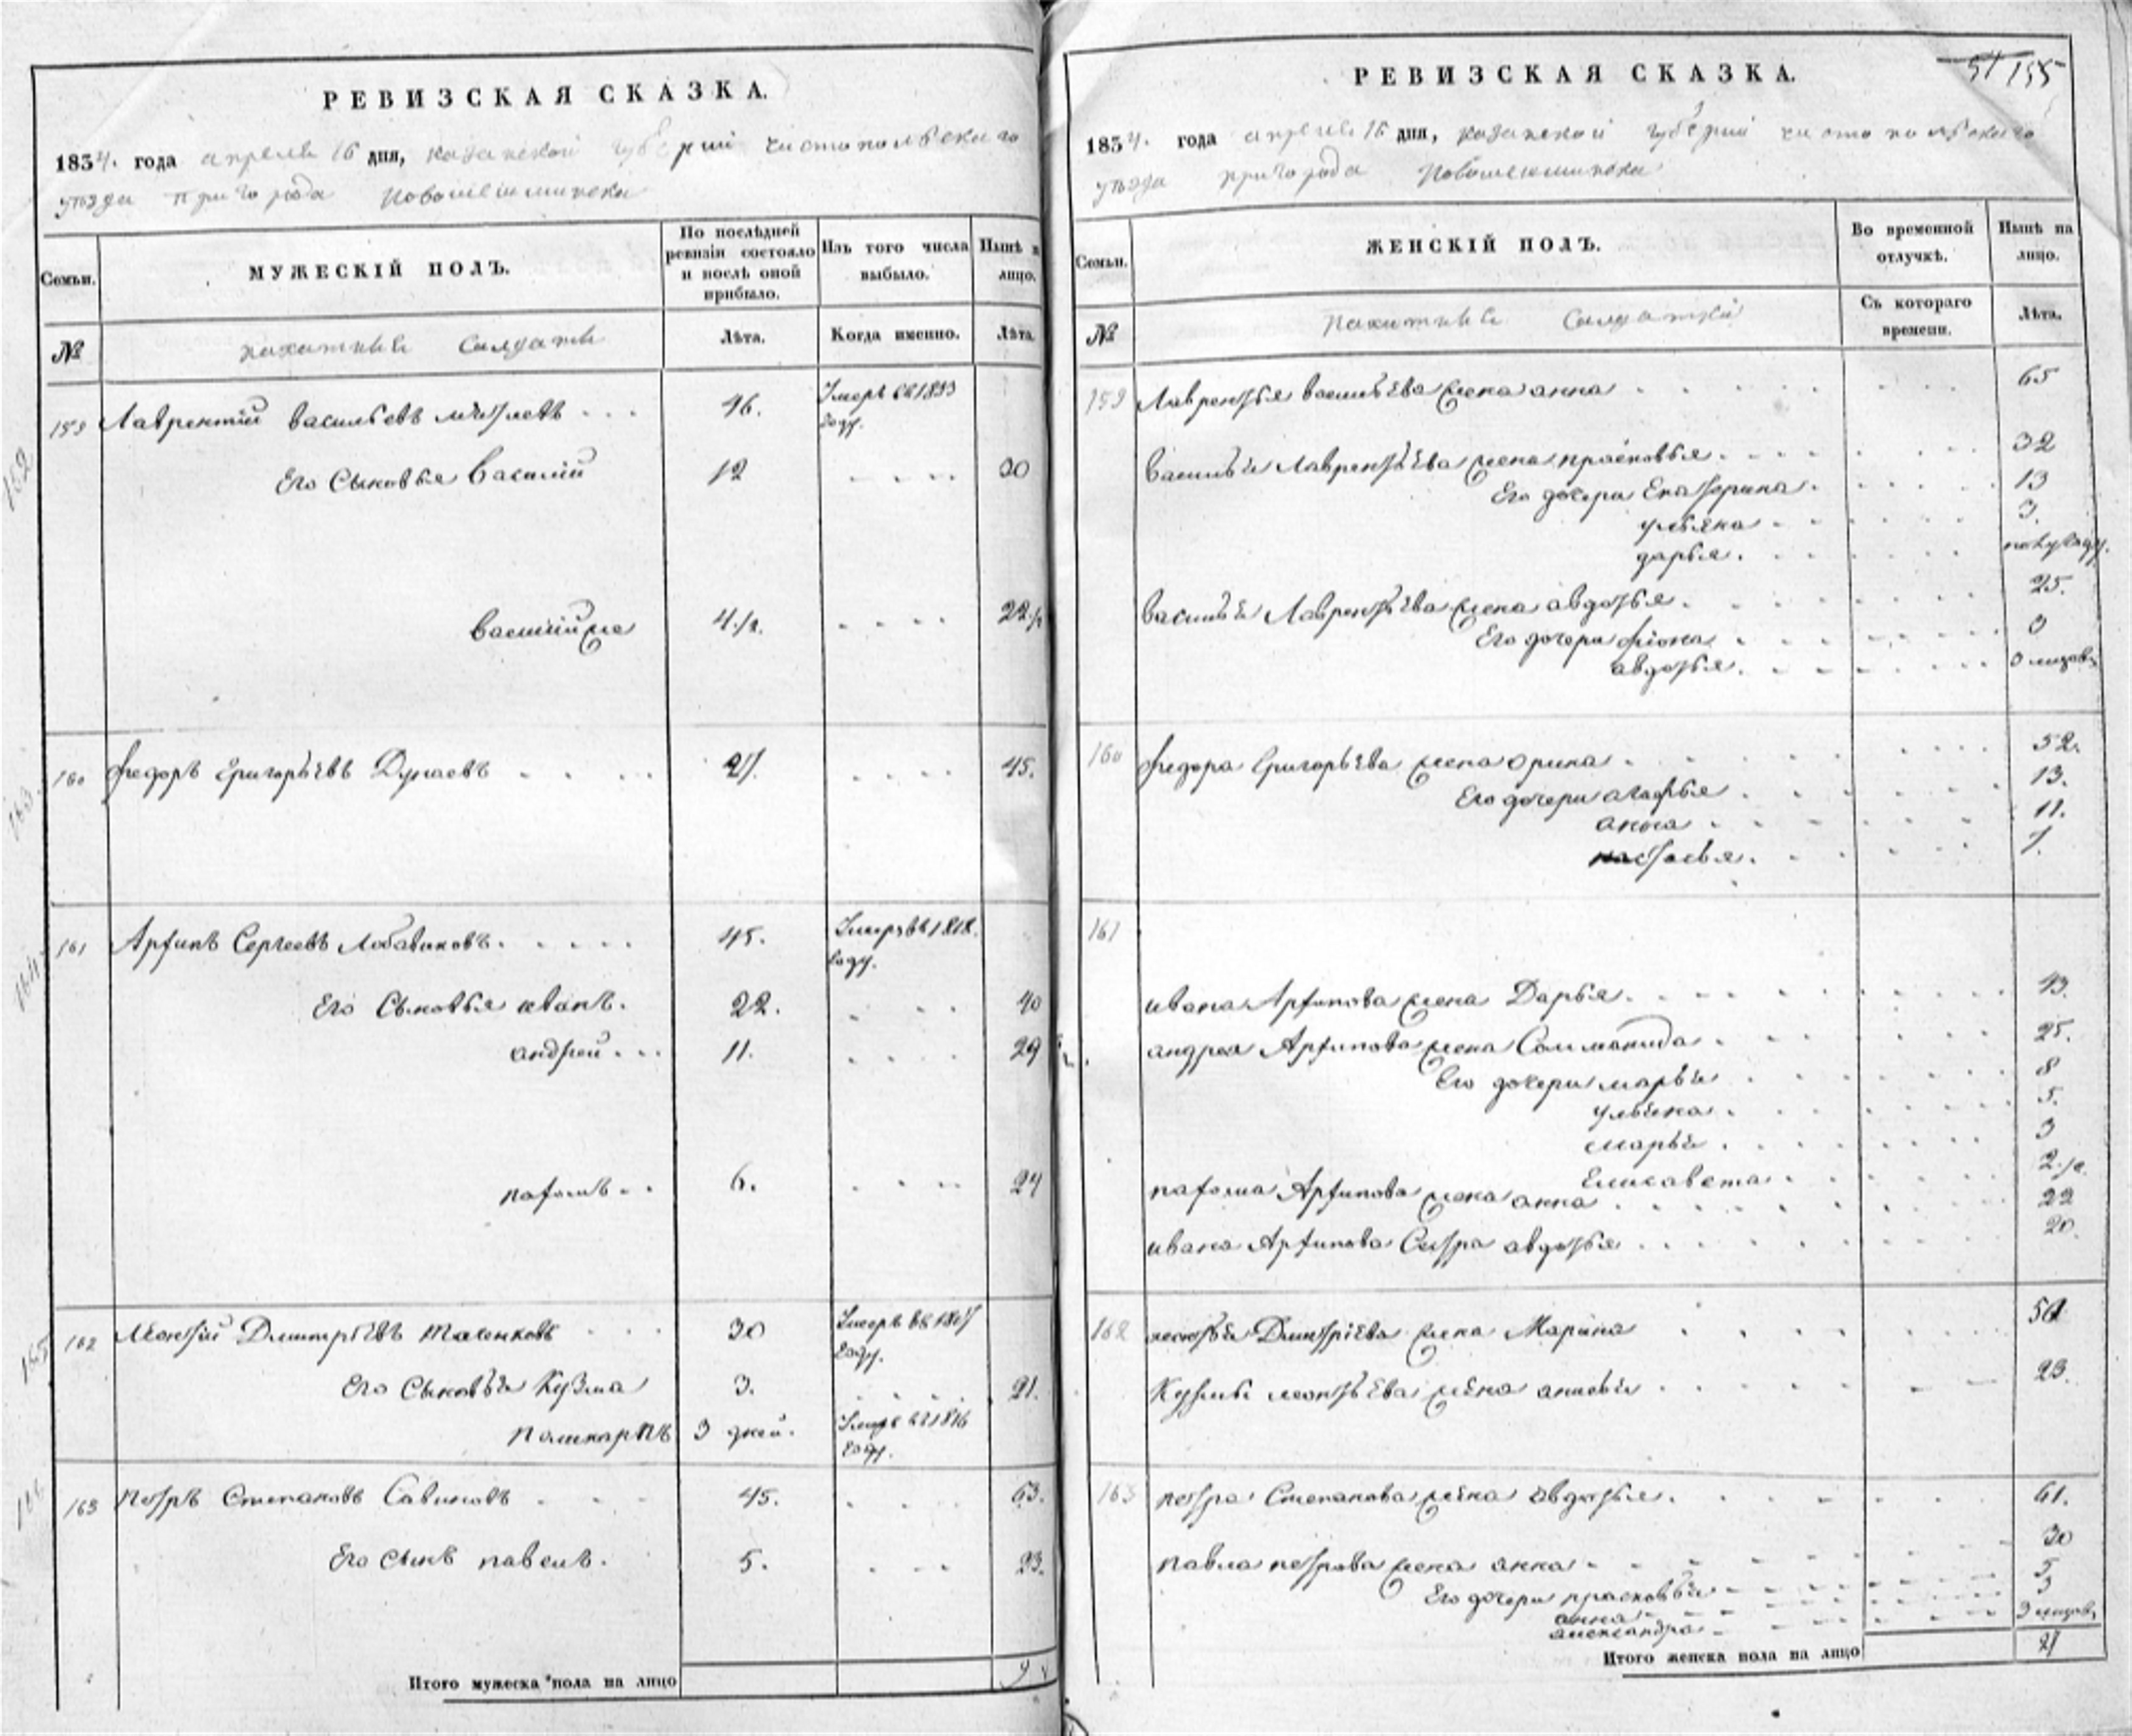 РЕВИЗСКАЯ СКАЗКА.
1834. года апреля 16 дня, казанской губернии чистопольскаго
уезда пригорода Новошешминска
Семьи.
МУЖЕСКІЙ ПОЛЪ.
По послѣдней ревизіи состояло и послѣ оной прибыло.
Изъ того числа выбыло.
Нынѣ на лицо.
№
пахатные Салдаты
Лѣта.
Когда именно.
Лѣта.
159 Лаврентій васильевъ 46. Умеръ въ 1833 году.
Его Сыновья Василій 12 30
василій же 4 1/2. 22 1/2
160 федоръ Григорьевъ Дунаевъ 27. 45.
161 Архипъ Сергеевъ Лобавиковъ. 45. Умеръ въ 1818. году.
Его Сыновья иванъ. 22. 40
андрей 11. 29
патапъ 6. 24
162 Леонтій Дмитріевъ 30 Умеръ въ 1817 году.
Его Сыновья Кузма 3. 21.
поликарпъ 3 дней. Умеръ въ 1816 году.
163 петръ Степановъ Савиновъ 45. 63.
Его сынъ павелъ. 5. 23.
Итого мужеска пола на лицо 9
51 155
РЕВИЗСКАЯ СКАЗКА.
1834. года апреля 16 дня, казанской губернии чистопольскаго
уезда пригорода Новошешминска
Семьи.
ЖЕНСКІЙ ПОЛЪ.
Во временной отлучкѣ.
Нынѣ на лицо.
№
пахатные Салдатки
Съ котораго времени.
Лѣта.
159 Лаврентья васильева жена анна 65
василья Лаврентьева жена прасковья 32
Его дочери Екатерина 13
ульяна 3.
дарья. полугоду.
василья Лаврентьева жена авдотья 25.
Его дочери фіона 3
авдотья. 3 месяцов
160 федора Григорьева жена орина 52.
Его дочери агафья 13.
анна 11.
настасья. 7.
161
ивана Архипова жена Дарья. 43.
андрея Архипова жена Соломанида 25.
Его дочери марья 8
ульяна. 5.
марья 3
Елисавета 2 1/2.
патапа Архипова жена анна 22
ивана Архипова Сестра авдотья 20.
162 леонтья Дмитріева жена Марина 50
Кузмы леонтьева жена 23.
163 петра Степанова жена авдотья. 61.
павла петрова жена анна 30
Его дочери прасковья 5
анна 3
александра 3 месяцов
Итого женска пола на лицо 27